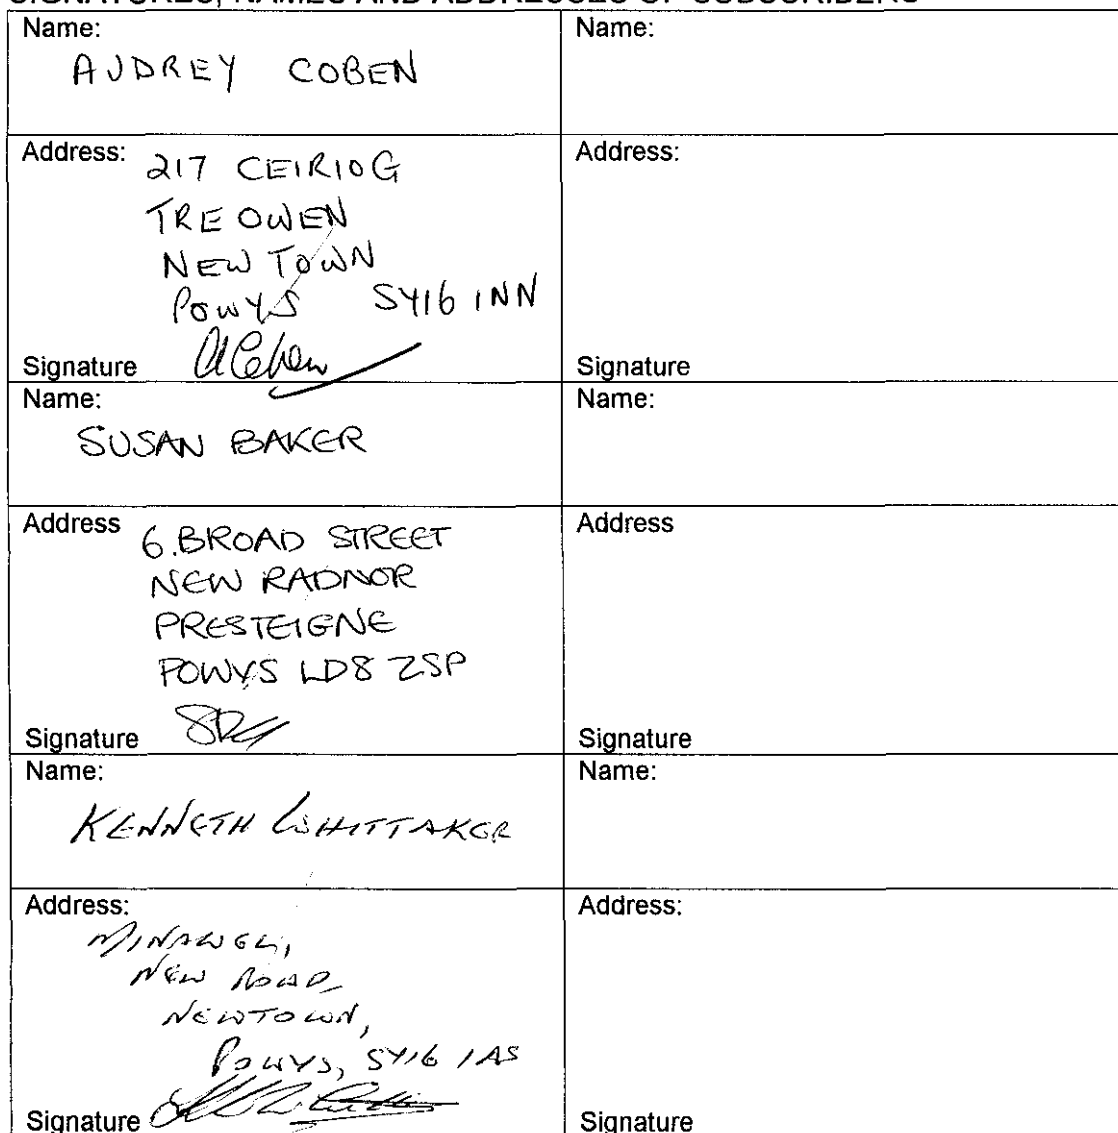 SIGNATURES, NAMES AND ADDRESSES OF SUBSCRIBERS
Name:
AUDREY COBEN
Name:
Address:
217 CEIRIOG
TREOWEN
NEWTOWN
POWYS SY16 1NN
Signature
Address:
Signature
Name:
SUSAN BAKER
Name:
Address
6. BROAD STREET
NEW RADNOR
PRESTEIGNE
POWYS LD8 2SP
Signature
Address
Signature
Name:
KENNETH WHITTAKER
Name:
Address:
NEW ROAD,
NEWTOWN,
POWYS, SY16 1AS
Signature
Address:
Signature